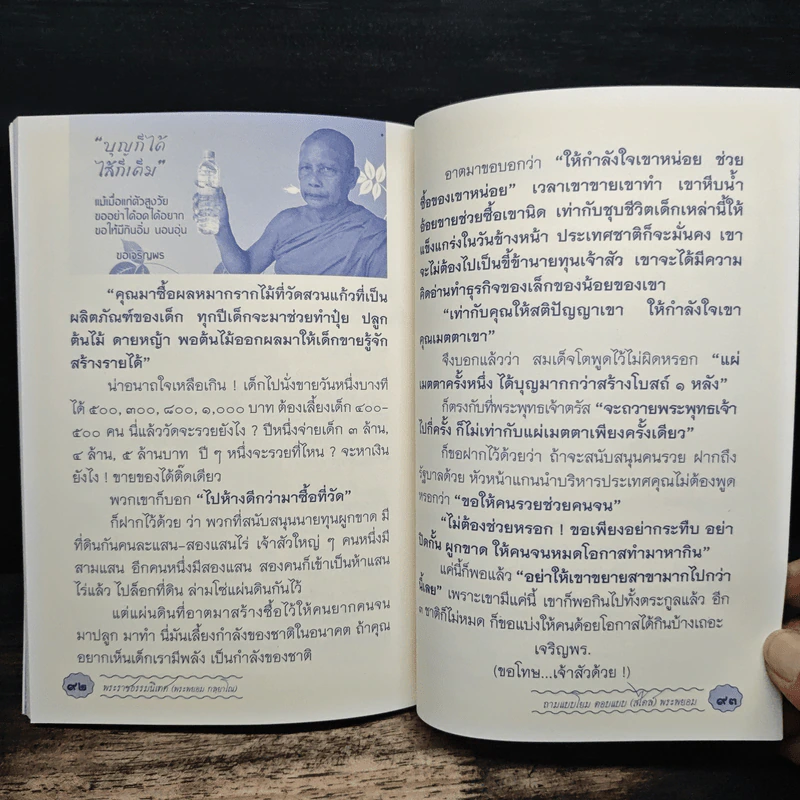 "บุญก็ได้
ไส้ก็เต็ม"
แม้เมื่อแก่ตัวสูงวัย
ขออย่าได้อดได้อยาก
ขอให้มีกินอิ่ม นอนอุ่น
ขอเจริญพร
"คุณมาซื้อผลหมากรากไม้ที่วัดสวนแก้วที่เป็น
ผลิตภัณฑ์ของเด็ก ทุกปีเด็กจะมาช่วยทำปุ๋ย ปลูก
ต้นไม้ ดายหญ้า พอต้นไม้ออกผลมาให้เด็กขายรู้จัก
สร้างรายได้"
น่าอนาถใจเหลือเกิน ! เด็กไปนั่งขายวันหนึ่งบางที
ได้ ๕๐๐, ๓๐๐, ๘๐๐, ๑,๐๐๐ บาท ต้องเลี้ยงเด็ก ๔๐๐-
๕๐๐ คน นี่แล้ววัดจะรวยยังไง ? ปีหนึ่งจ่ายเด็ก ๓ ล้าน,
๔ ล้าน, ๕ ล้านบาท ปี ๆ หนึ่งจะรวยที่ไหน ? จะหาเงิน
ยังไง ! ขายของได้ติ๊ดเดียว
พวกเขาก็บอก "ไปห้างดีกว่ามาซื้อที่วัด"
ก็ฝากไว้ด้วย ว่า พวกที่สนับสนุนนายทุนผูกขาด มี
ที่ดินกันคนละแสน-สองแสนไร่ เจ้าสัวใหญ่ ๆ คนหนึ่งมี
สามแสน อีกคนหนึ่งมีสองแสน สองคนก็เข้าเป็นห้าแสน
ไร่แล้ว ไปล็อกที่ดิน ล่ามโซ่แผ่นดินกันไว้
แต่แผ่นดินที่อาตมาสร้างซื้อไว้ให้คนยากคนจน
มาปลูก มาทำ นี่มันเลี้ยงกำลังของชาติในอนาคต ถ้าคุณ
อยากเห็นเด็กเรามีพลัง เป็นกำลังของชาติ
๙๒ พระราชธรรมนิเทศ (พระพยอม กลฺยาโณ)
อาตมาขอบอกว่า "ให้กำลังใจเขาหน่อย ช่วย
ซื้อของเขาหน่อย" เวลาเขาขายเขาทำ เขาหีบน้ำ
อ้อยขายช่วยซื้อเขานิด เท่ากับชุบชีวิตเด็กเหล่านี้ให้
แข็งแกร่งในวันข้างหน้า ประเทศชาติก็จะมั่นคง เขา
จะไม่ต้องไปเป็นขี้ข้านายทุนเจ้าสัว เขาจะได้มีความ
คิดอ่านทำธุรกิจของเล็กของน้อยของเขา
"เท่ากับคุณให้สติปัญญาเขา ให้กำลังใจเขา
คุณเมตตาเขา"
จึงบอกแล้วว่า สมเด็จโตพูดไว้ไม่ผิดหรอก "แผ่
เมตตาครั้งหนึ่ง ได้บุญมากกว่าสร้างโบสถ์ ๑ หลัง"
ก็ตรงกับที่พระพุทธเจ้าตรัส "จะถวายพระพุทธเจ้า
ไปกี่ครั้ง ก็ไม่เท่ากับแผ่เมตตาเพียงครั้งเดียว"
ก็ขอฝากไว้ด้วยว่า ถ้าจะสนับสนุนคนรวย ฝากถึง
รัฐบาลด้วย หัวหน้าแกนนำบริหารประเทศคุณไม่ต้องพูด
หรอกว่า "ขอให้คนรวยช่วยคนจน"
"ไม่ต้องช่วยหรอก ! ขอเพียงอย่ากระทืบ อย่า
ปิดกั้น ผูกขาด ให้คนจนหมดโอกาสทำมาหากิน"
แค่นี้ก็พอแล้ว "อย่าให้เขาขยายสาขามากไปกว่า
นี้เลย" เพราะเขามีแค่นี้ เขาก็พอกินไปทั้งตระกูลแล้ว อีก
๓ ชาติก็ไม่หมด ก็ขอแบ่งให้คนด้อยโอกาสได้กินบ้างเถอะ
เจริญพร.
(ขอโทษ...เจ้าสัวด้วย !)
ถามแบบโยม ตอบแบบ (สไตล์) พระพยอม ๙๓